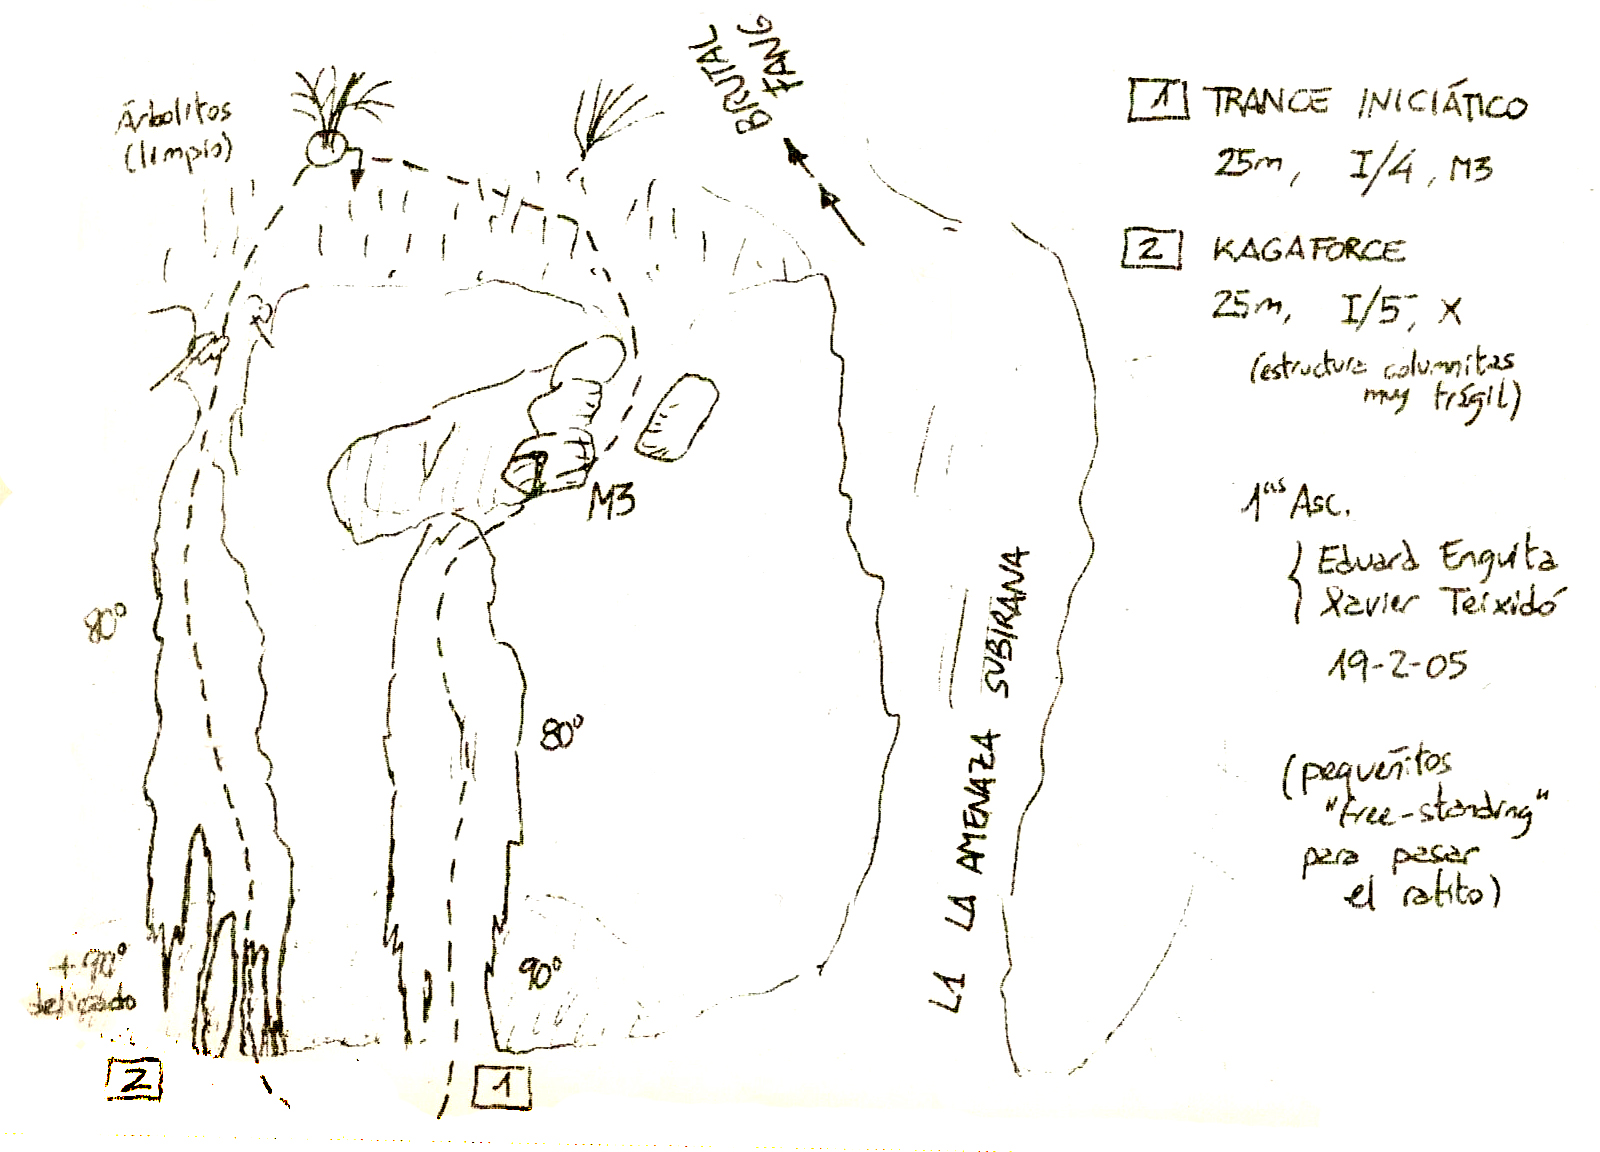 BRUTAL
FANG
Árbolitos
(limpio)
1 TRANCE INICIÁTICO
25m, I/4, M3
2 KAGAFORCE
25m, I/5-, X
(estructura columnitas
muy frágil)
M3
1as Asc.
Eduard Enguita
Xavier Teixidó
19-2-05
80º
80º
L1 LA AMENAZA SUBIRANA
(pequeñitos
"free-standing"
para pasar
el ratito)
+90º
delicado
90º
2
1